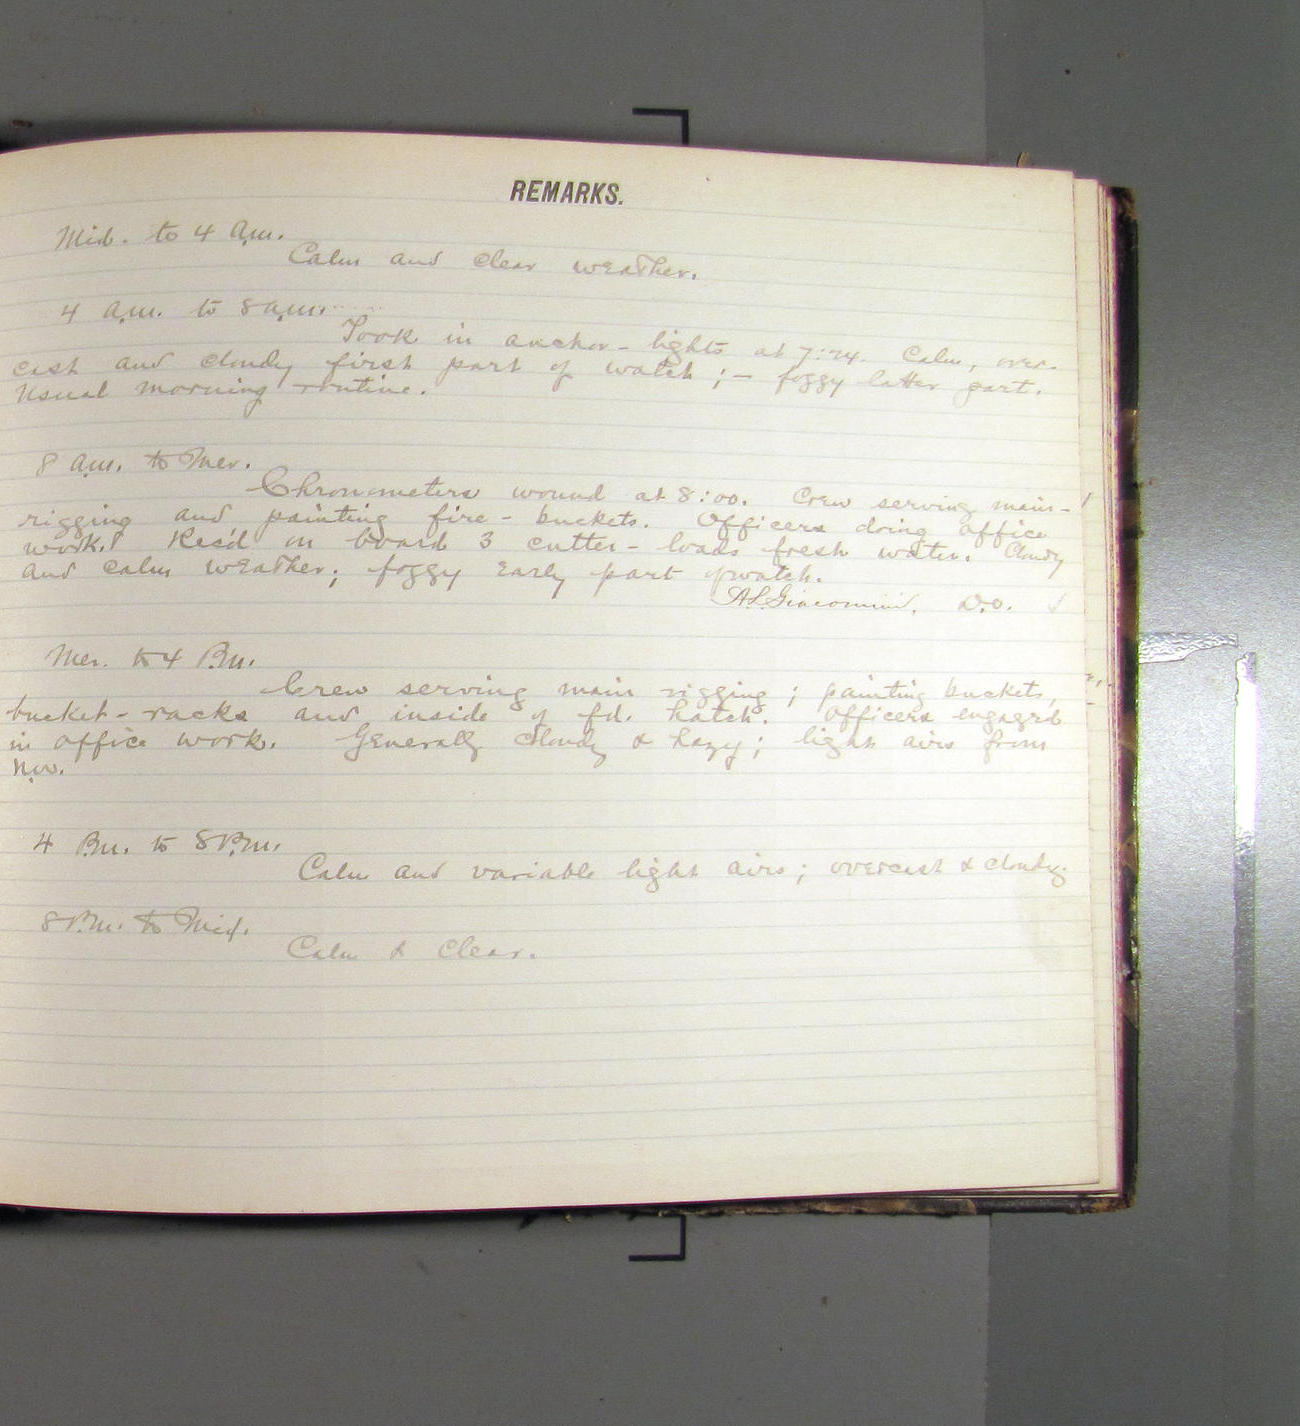 REMARKS.
Mid. to 4 a.m.
Calm and clear weather.
4 a.m. to 8 a.m.
Took in anchor-lights at 7:24. Calm, over-
cast and cloudy first part of watch; - foggy latter part.
Usual morning routine.
8 a.m. to Mer.
Chronometers wound at 8:00. Crew serving main-
rigging and painting fire-buckets. Officers doing office
work. Rec'd on board 3 cutter-loads fresh water. Cloudy
and calm weather; foggy early part of watch.
A.L. Giacomini, D.O.
Mer. to 4 P.m.
Crew serving main rigging; painting buckets,
bucket-racks and inside of fd. hatch. Officers engaged
in office work. Generally cloudy & hazy; light airs from
N.w.
4 P.m. to 8 P.m.
Calm and variable light airs; overcast & cloudy.
8 P.m. to Mid.
Calm & Clear.